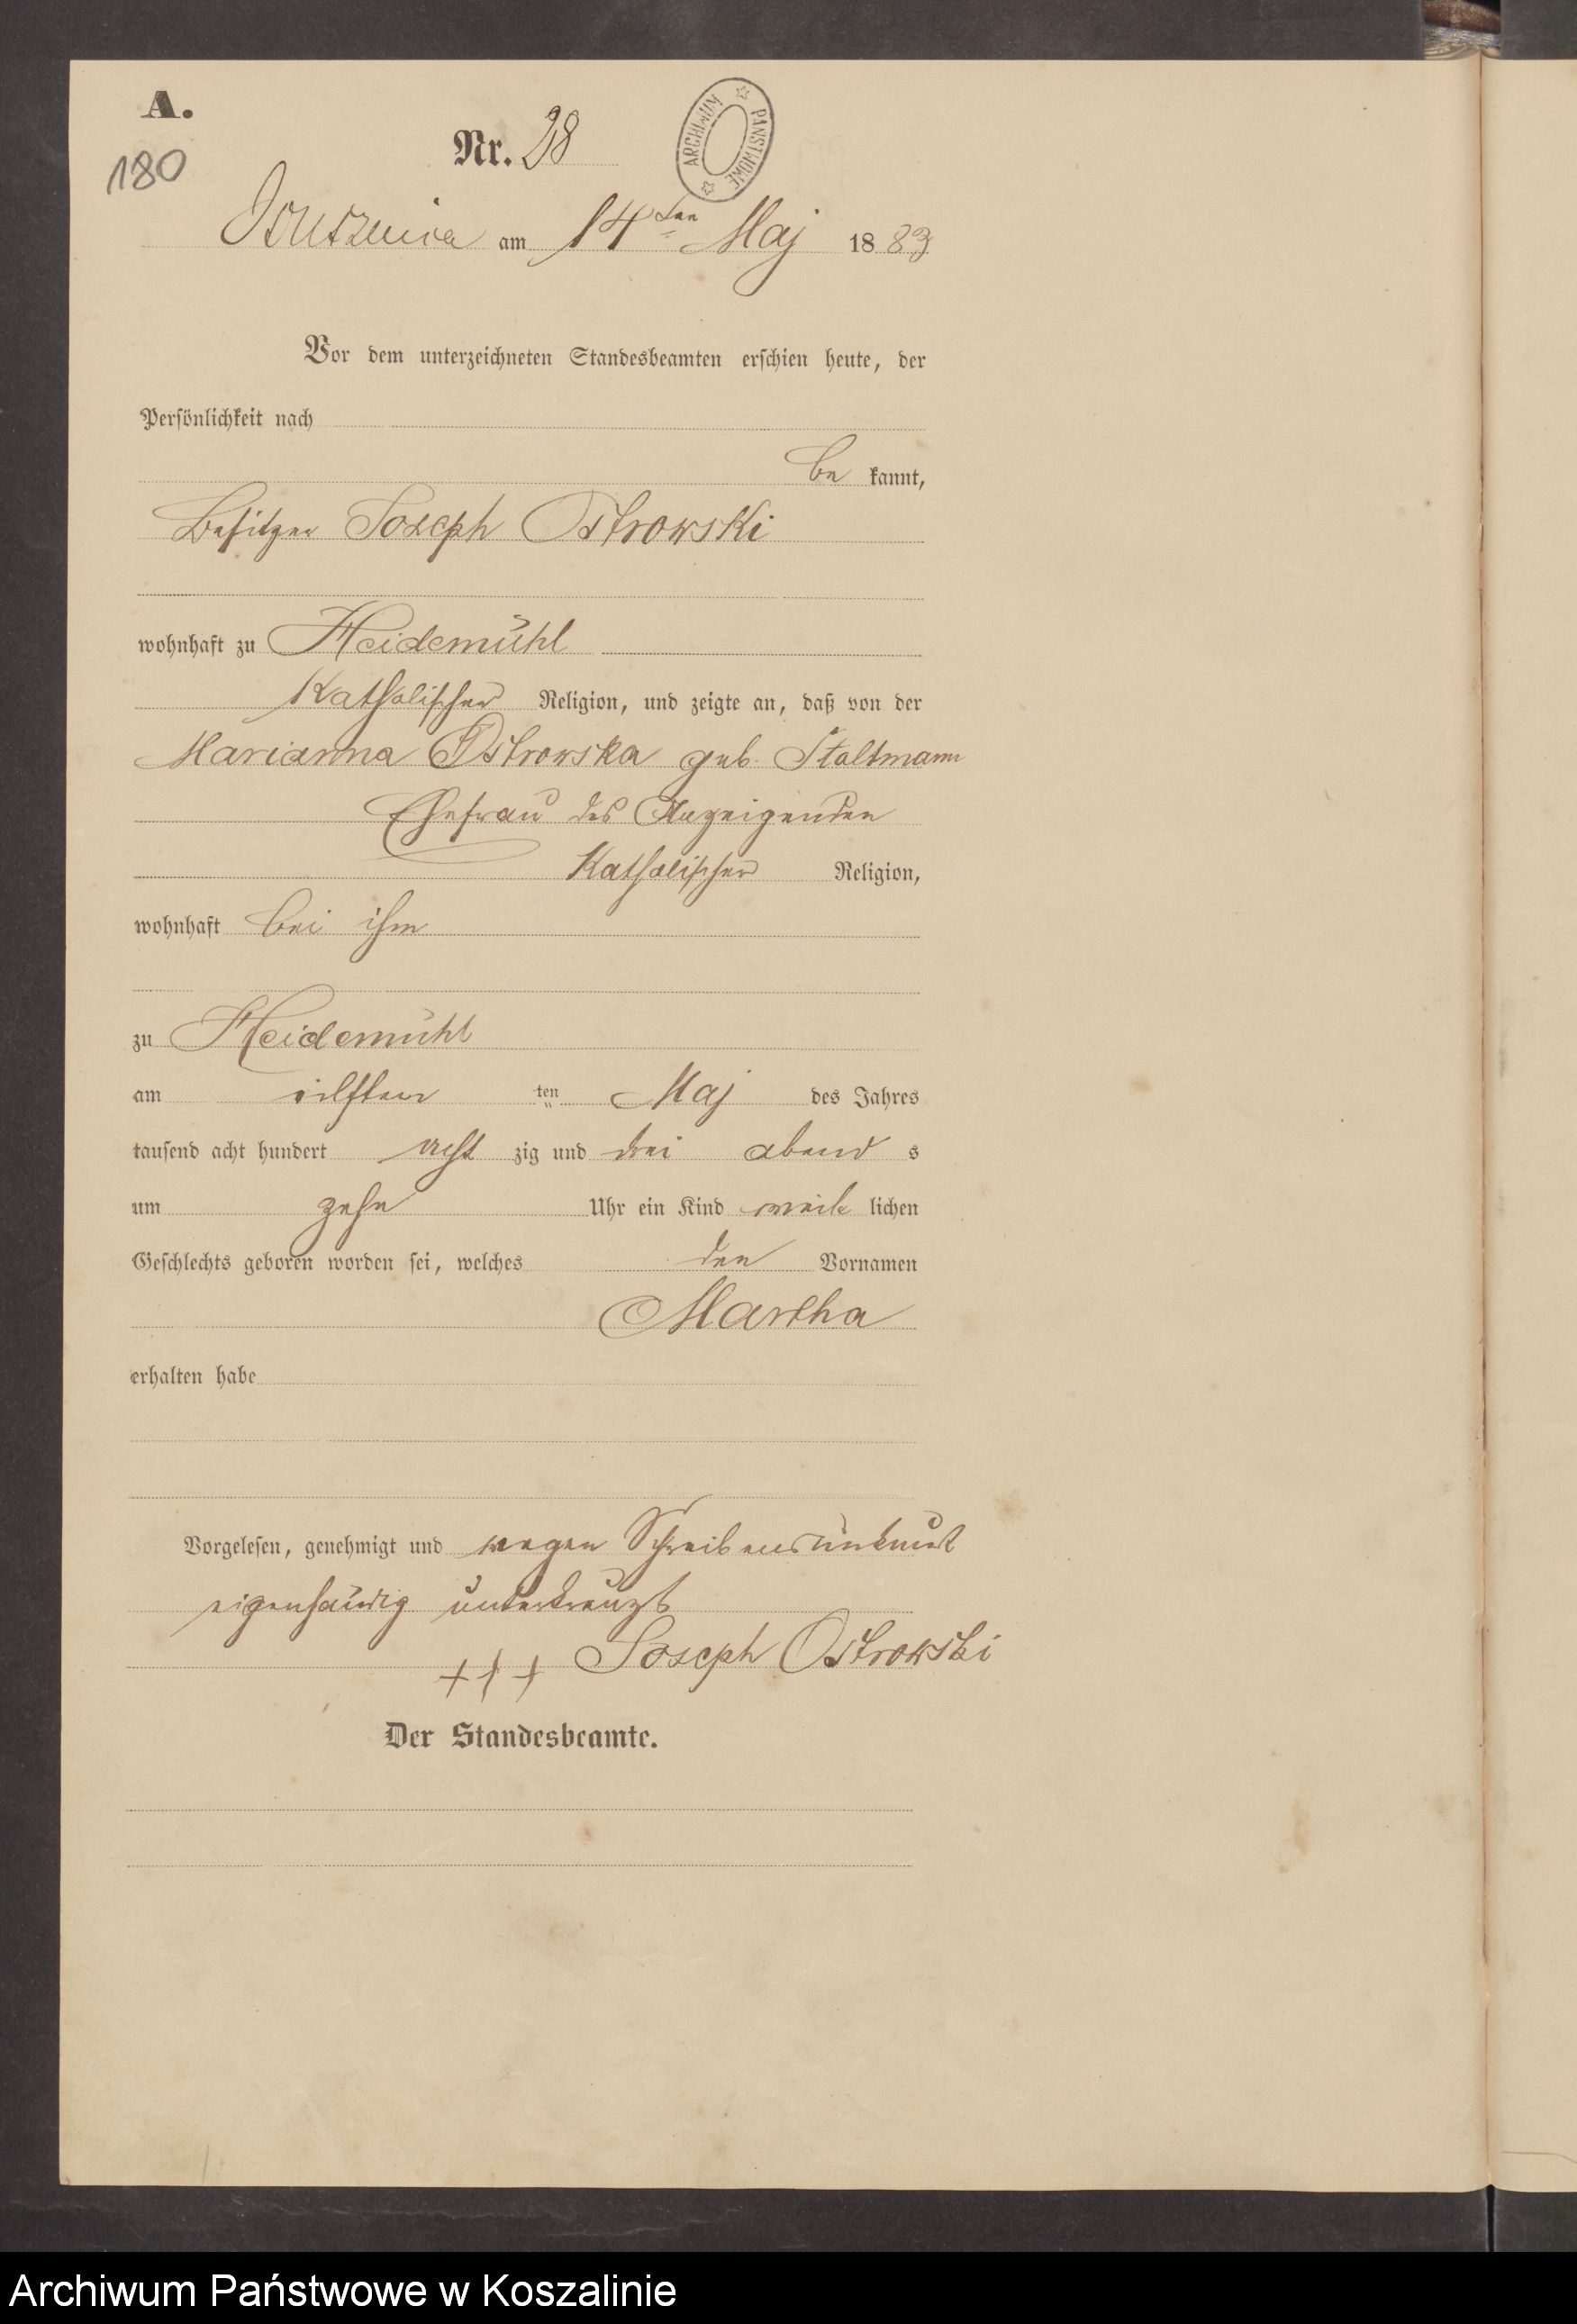 A.
180
Nr. 28
ARCHIWUM PAŃSTWOWE
am 14ten Maj 1883
Vor dem unterzeichneten Standesbeamten erschien heute, der
Persönlichkeit nach
be kannt,
Besitzer Joseph Ostrowski
wohnhaft zu Heidemühl
Katholischer Religion, und zeigte an, daß von der
Marianna Ostrowska geb. Staltmann
Ehefrau des Anzeigenden
Katholischer Religion,
wohnhaft bei ihm
zu Heidemühl
am eilften ten Maj des Jahres
tausend acht hundert acht zig und drei abend s
um zehn Uhr ein Kind weib lichen
Geschlechts geboren worden sei, welches den Vornamen
Martha
erhalten habe
Vorgelesen, genehmigt und wegen Schreibensunkunst
eigenhändig unterkreuzt
+++ Joseph Ostrowski
Der Standesbeamte.
Archiwum Państwowe w Koszalinie